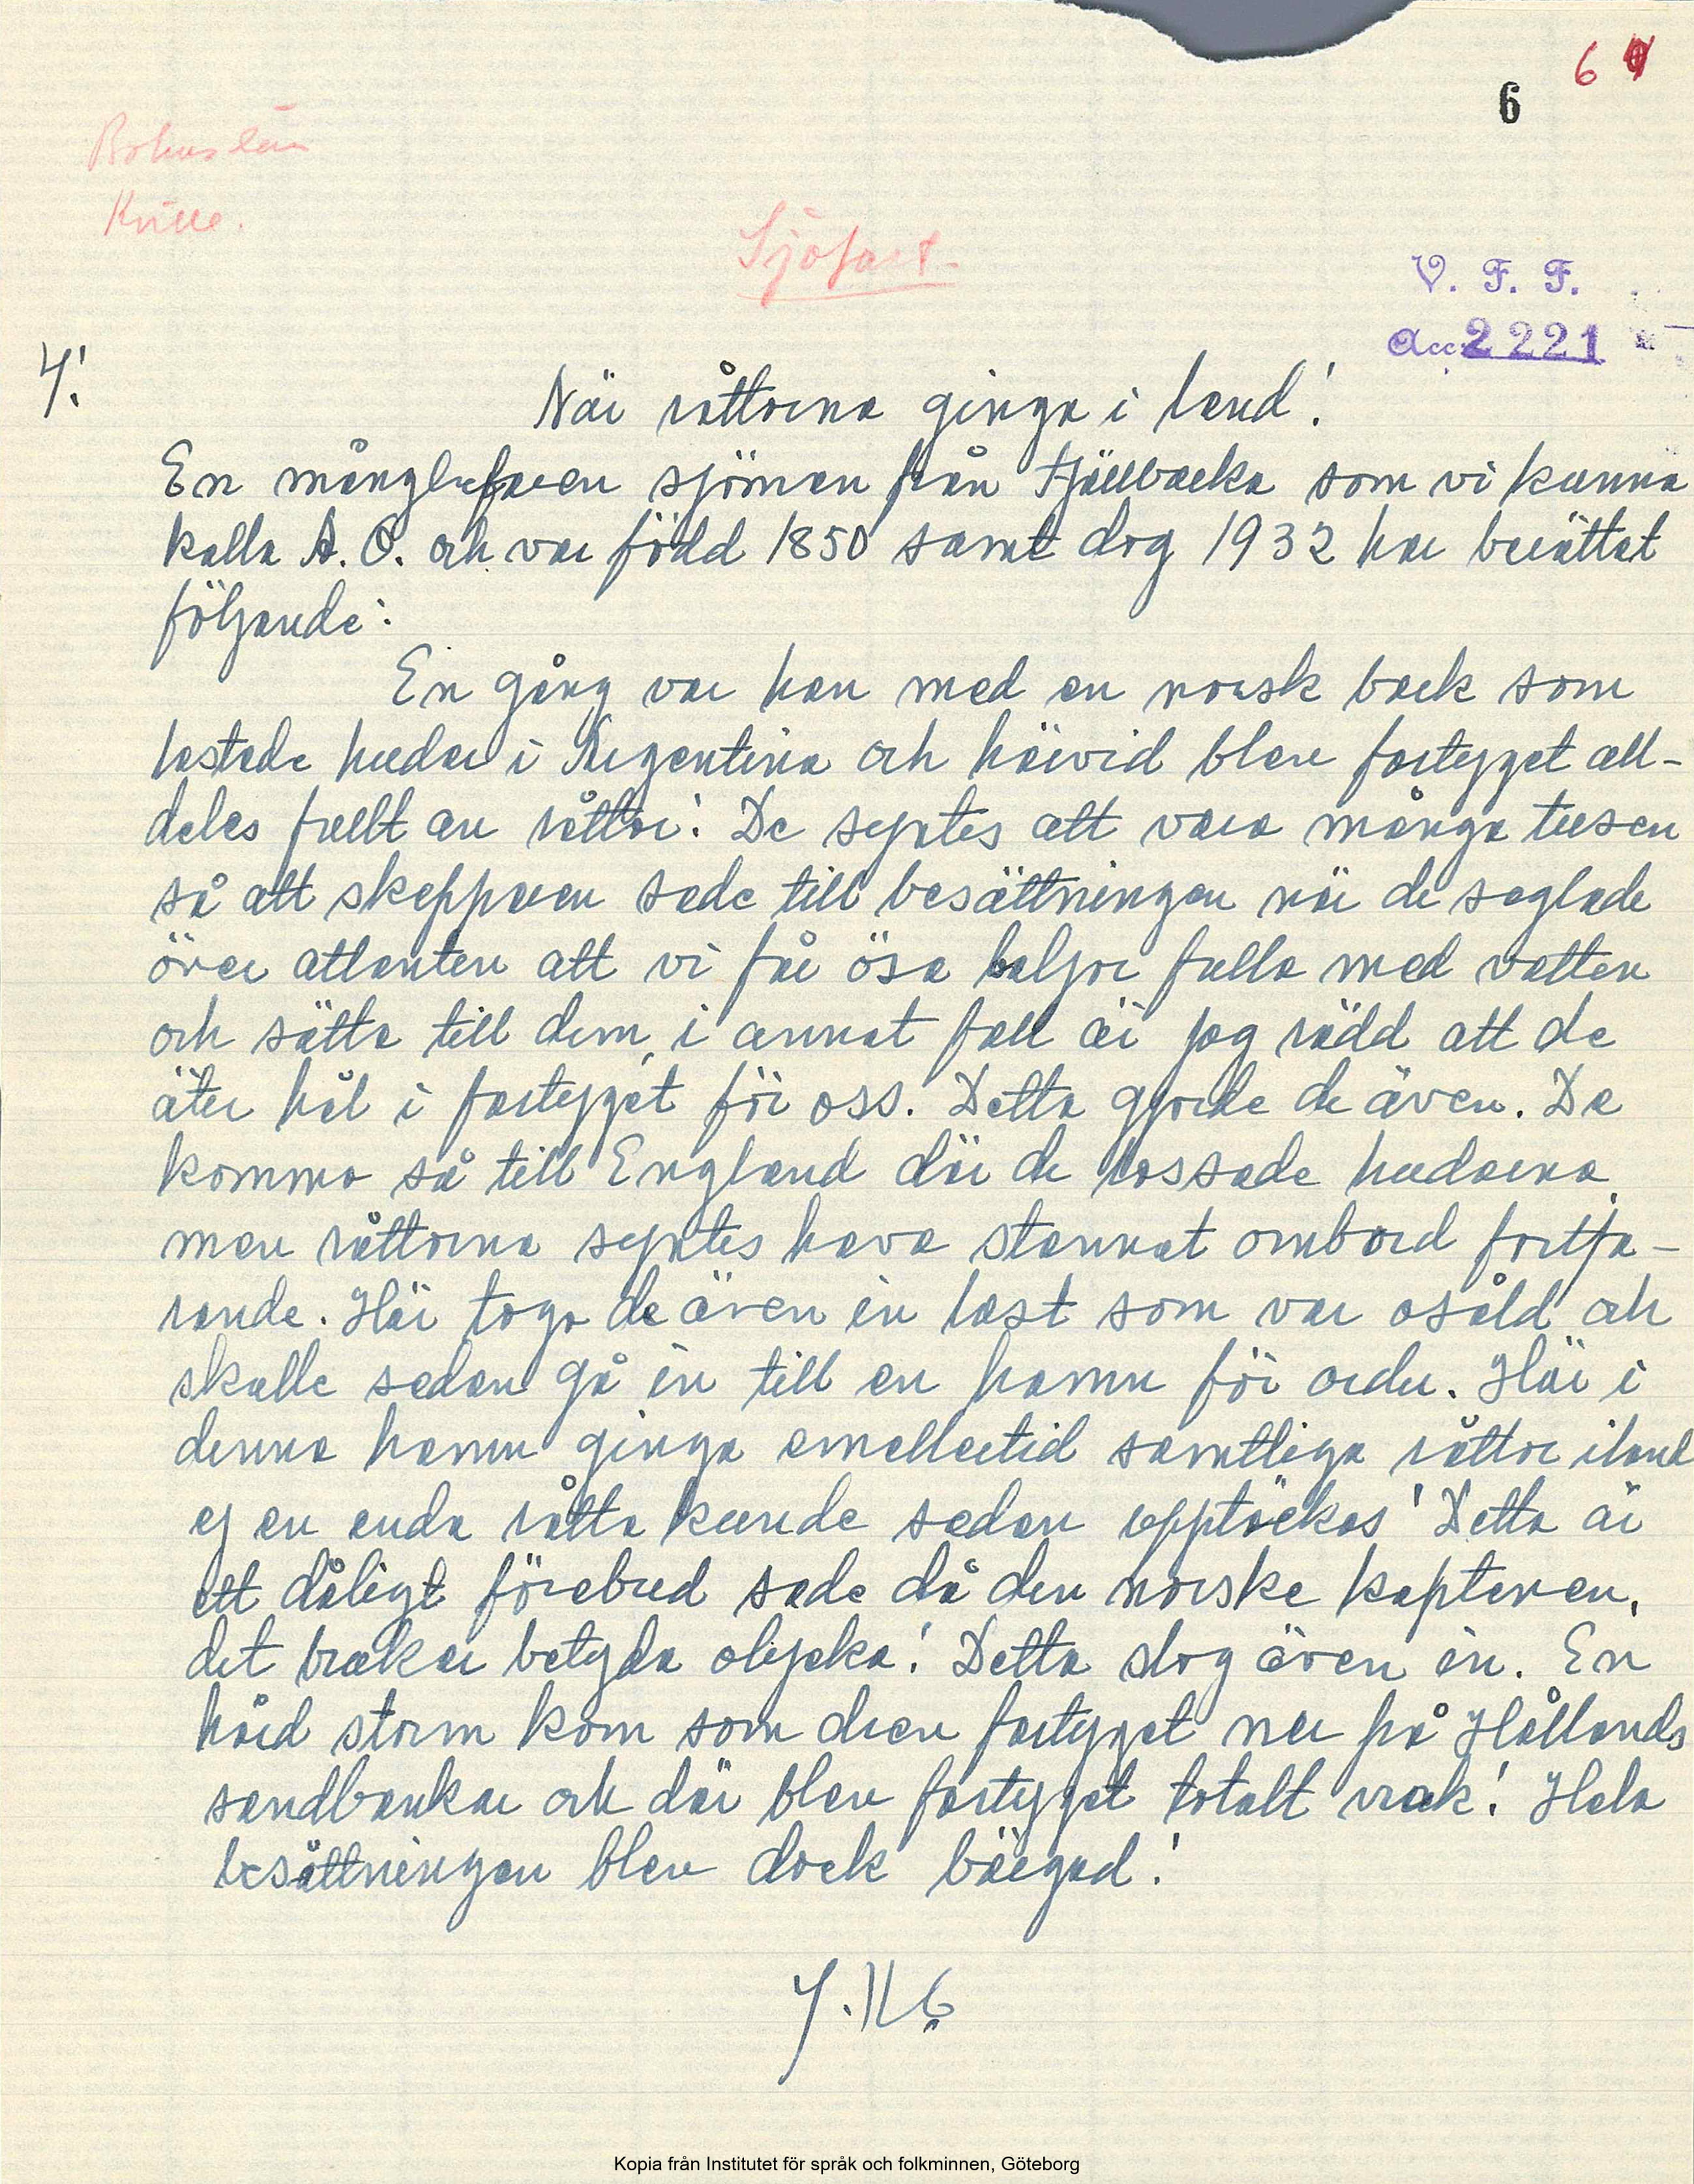 6
6
Bohuslän
Kville.
Sjöfart.
V. F. F.
Acc. 2221
4.
När råttorna gingo i land!
En mångbefaren sjöman från Fjällbacka som vi kunna
kalla A. O. och var född 1850 samt dog 1932 har berättat
följande:
En gång var han med en norsk bark som
lastade hudar i Argentina och härvid blev fartyget all-
deles fullt av råttor! De syntes att vara många tusen
så att skepparen sade till besättningen när de seglade
över atlanten att vi får ösa baljor fulla med vatten
och sätta till dem, i annat fall är jag rädd att de
äter hål i fartyget för oss. Detta gjorde de även. De
kommo så till England där de lossade hudarna
men råttorna syntes hava stannat ombord fortfa-
rande. Här togo de även in last som var osåld och
skulle sedan gå in till en hamn för order. Här i
denna hamn gingo emellertid samtliga råttor iland
ej en enda råtta kunde sedan upptäckas! Detta är
ett dåligt förebud sade då den norske kaptenen,
det brukar betyda olycka! Detta slog även in. En
hård storm kom som drev fartyget ner på Hållands
sandbankar och där blev fartyget totalt vrak! Hela
besättningen blev dock bärgad!
Kopia från Institutet för språk och folkminnen, Göteborg